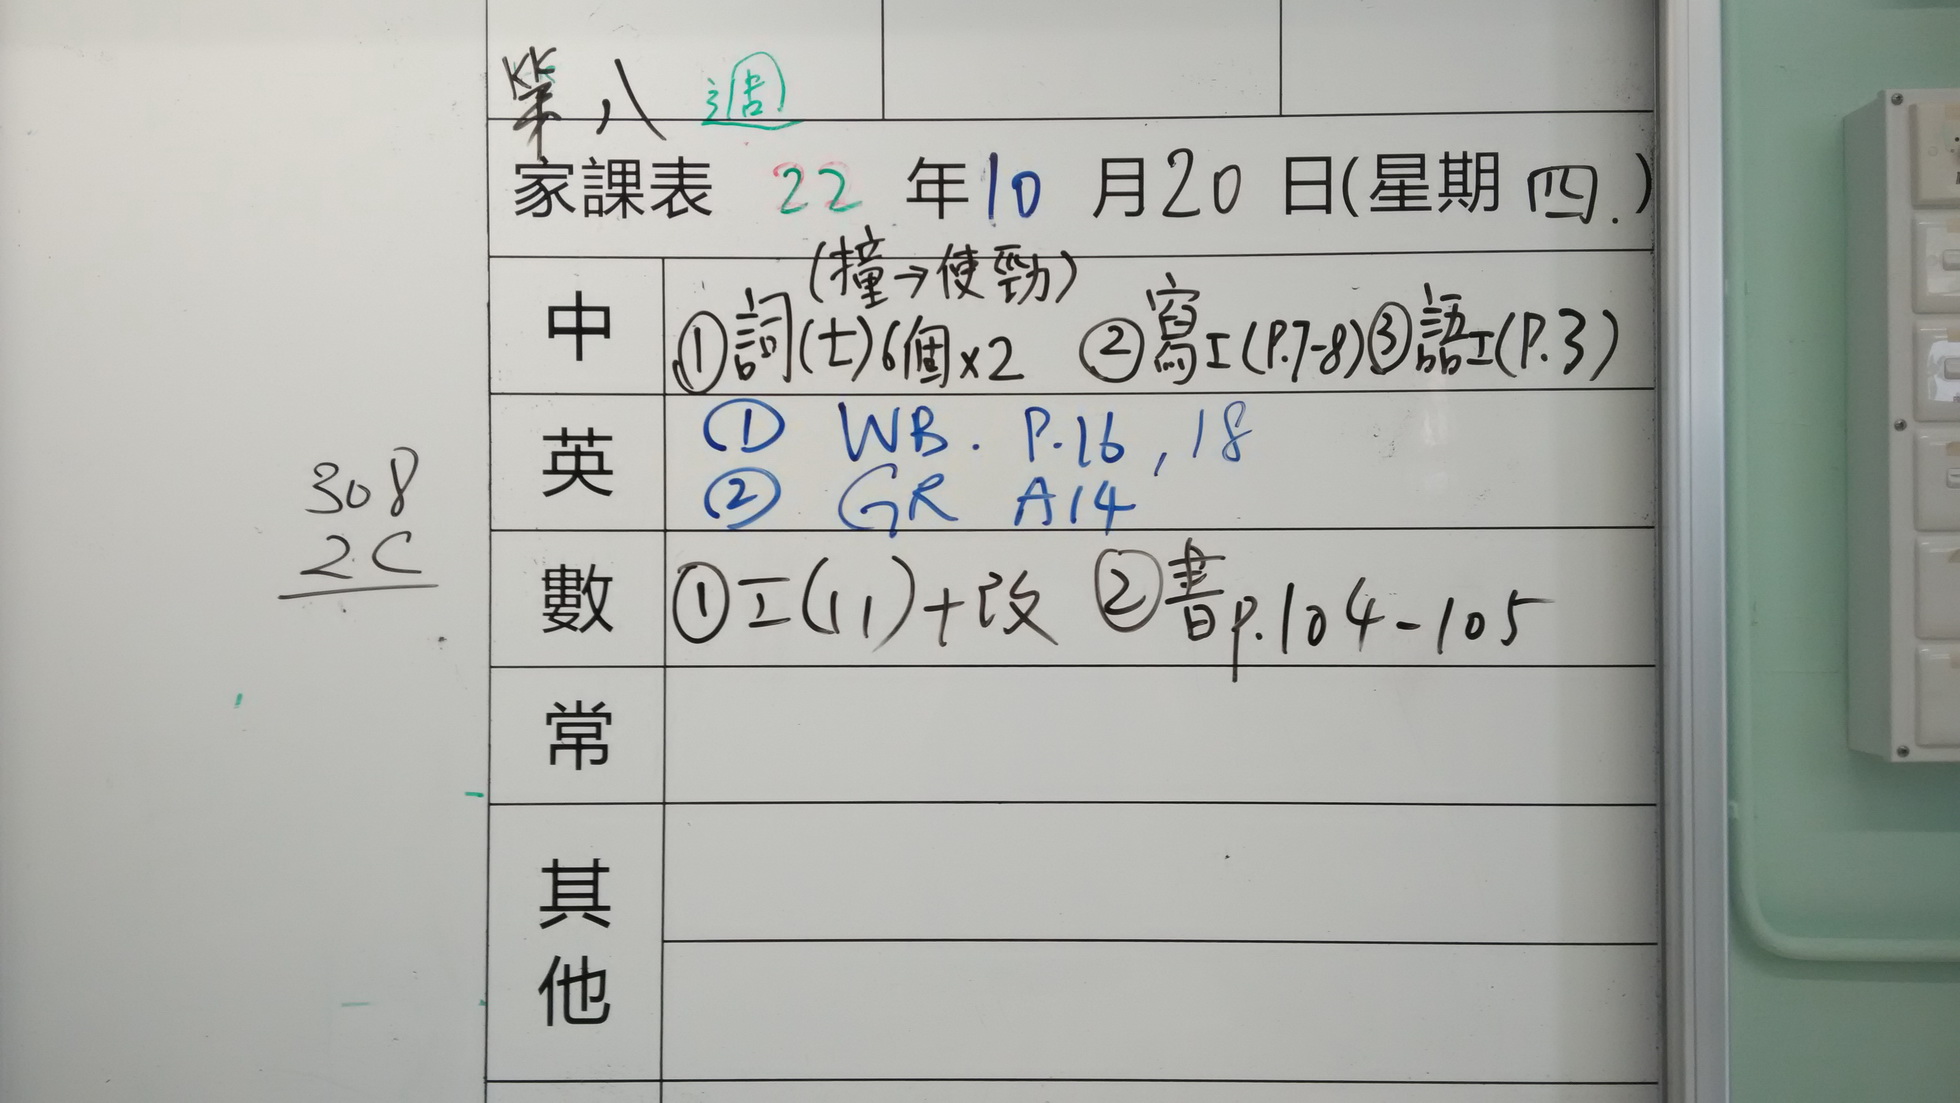 第八週
家課表 22 年 10 月 20 日(星期 四.)
(撞→使勁)
中 ①詞(七)6個×2 ②寫工(P.7-8)③語工(P.3)
英 ① WB. P.16, 18
② GR A14
308
2C
數 ①工(11)+改 ②書p.104-105
常
其他